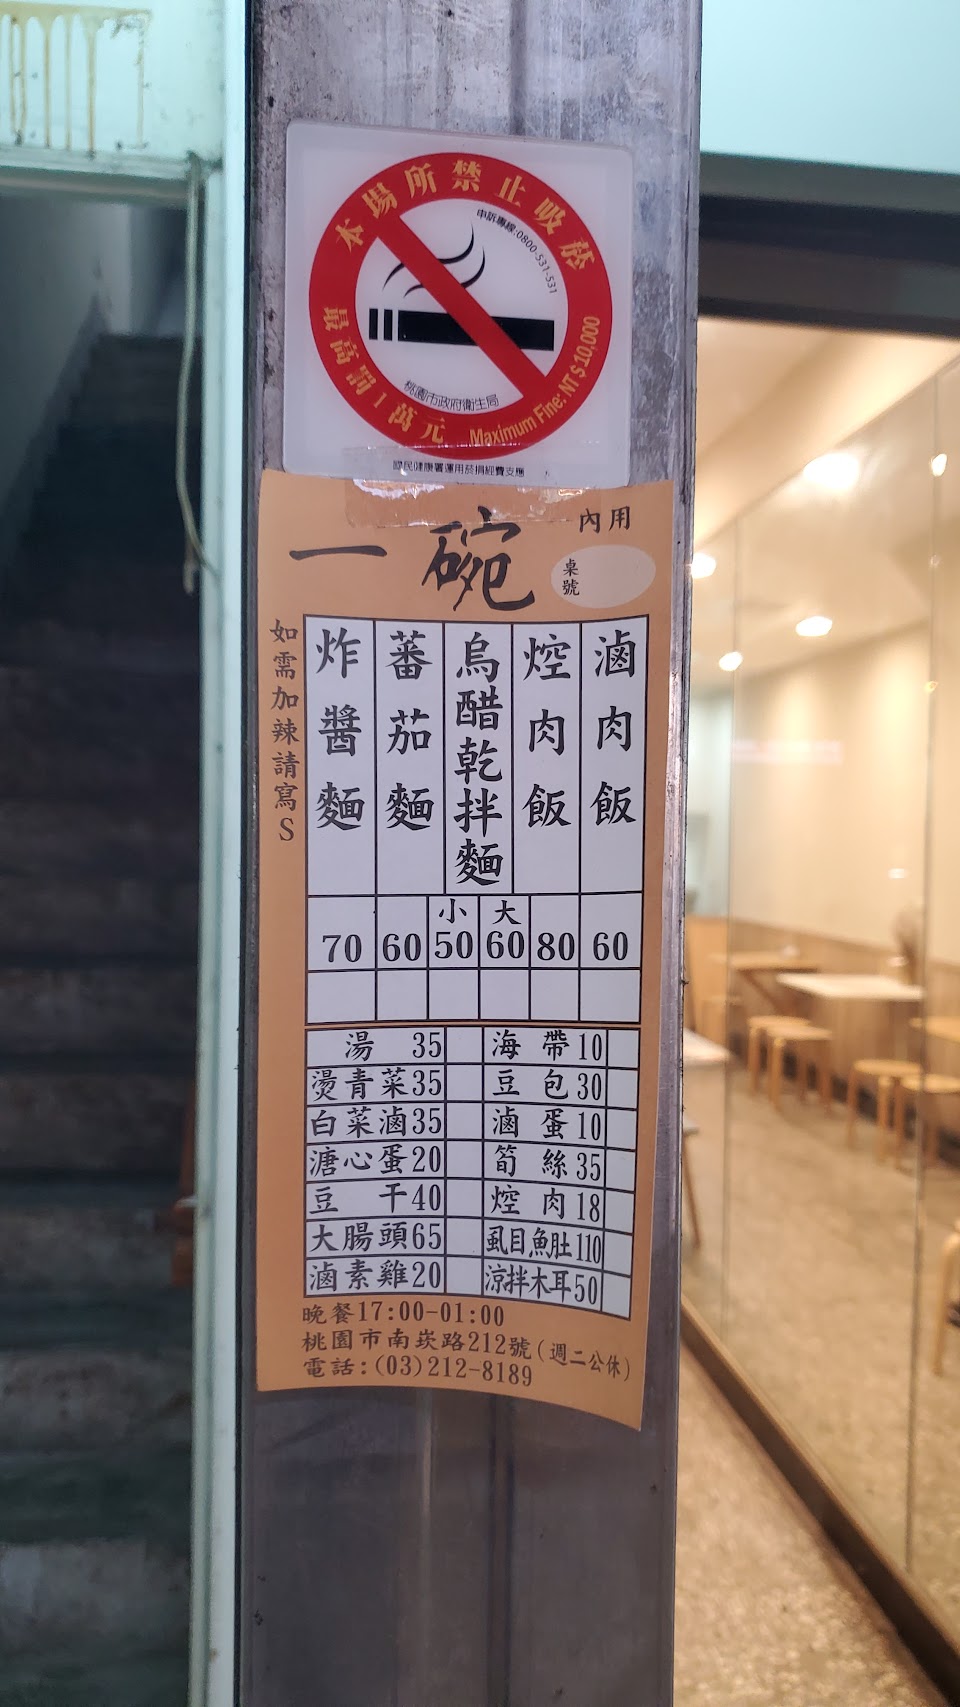 本場所禁止吸菸
申訴專線:0800-531-531
桃園市政府衛生局
最高罰1萬元 Maximum Fine: NT$10,000
國民健康署運用菸捐經費支應
一碗
內用
桌號
滷肉飯
焢肉飯
烏醋乾拌麵
蕃茄麵
炸醬麵
如需加辣請寫S
小 大
70 60 50 60 80 60
湯 35 海帶 10
燙青菜 35 豆包 30
白菜滷 35 滷蛋 10
溏心蛋 20 筍絲 35
豆干 40 焢肉 18
大腸頭 65 虱目魚肚 110
滷素雞 20 涼拌木耳 50
晚餐17:00-01:00
桃園市南崁路212號(週二公休)
電話:(03)212-8189